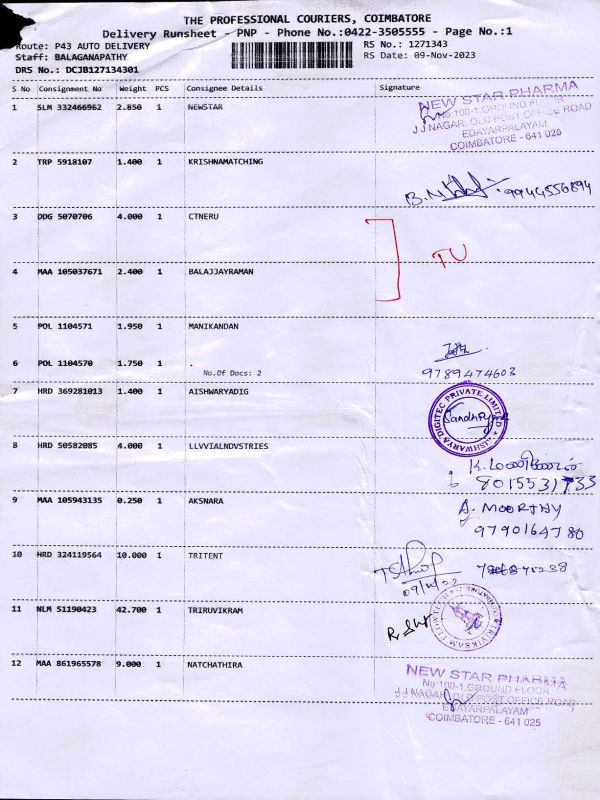 THE PROFESSIONAL COURIERS, COIMBATORE
Delivery Runsheet - PNP - Phone No.:0422-3505555 - Page No.:1
Route: P43 AUTO DELIVERY
RS No.: 1271343
Staff: BALAGANAPATHY
RS Date: 09-Nov-2023
DRS No.: DCJB127134301
S No Consignment No Weight PCS Consignee Details Signature
1 SLM 332466962 2.850 1 NEWSTAR
NEW STAR PHARMA
No:100-1, GROUND FLOOR
J J NAGAR, OLD POST OFFICE ROAD
EDAYARPALAYAM
COIMBATORE - 641 025
2 TRP 5918107 1.400 1 KRISHNAMATCHING
9944556894
3 DDG 5070706 4.000 1 CTNERU
TU
4 MAA 105037671 2.400 1 BALAJJAYRAMAN
5 POL 1104571 1.950 1 MANIKANDAN
6 POL 1104570 1.750 1 .
No.Of Docs: 2
9789474603
7 HRD 369281013 1.400 1 AISHWARYADIG
AISHWARYA DIGITEC PRIVATE LIMITED
8 HRD 50582085 4.000 1 LLVVIALNDVSTRIES
8015531733
9 MAA 105943135 0.250 1 AKSNARA
A. MOORTHY
9790164780
10 HRD 324119564 10.000 1 TRITENT
11 NLM 51190423 42.700 1 TRIRUVIKRAM
12 MAA 861965578 9.000 1 NATCHATHIRA
NEW STAR PHARMA
No:100-1, GROUND FLOOR
J J NAGAR, OLD POST OFFICE ROAD
EDAYARPALAYAM
COIMBATORE - 641 025